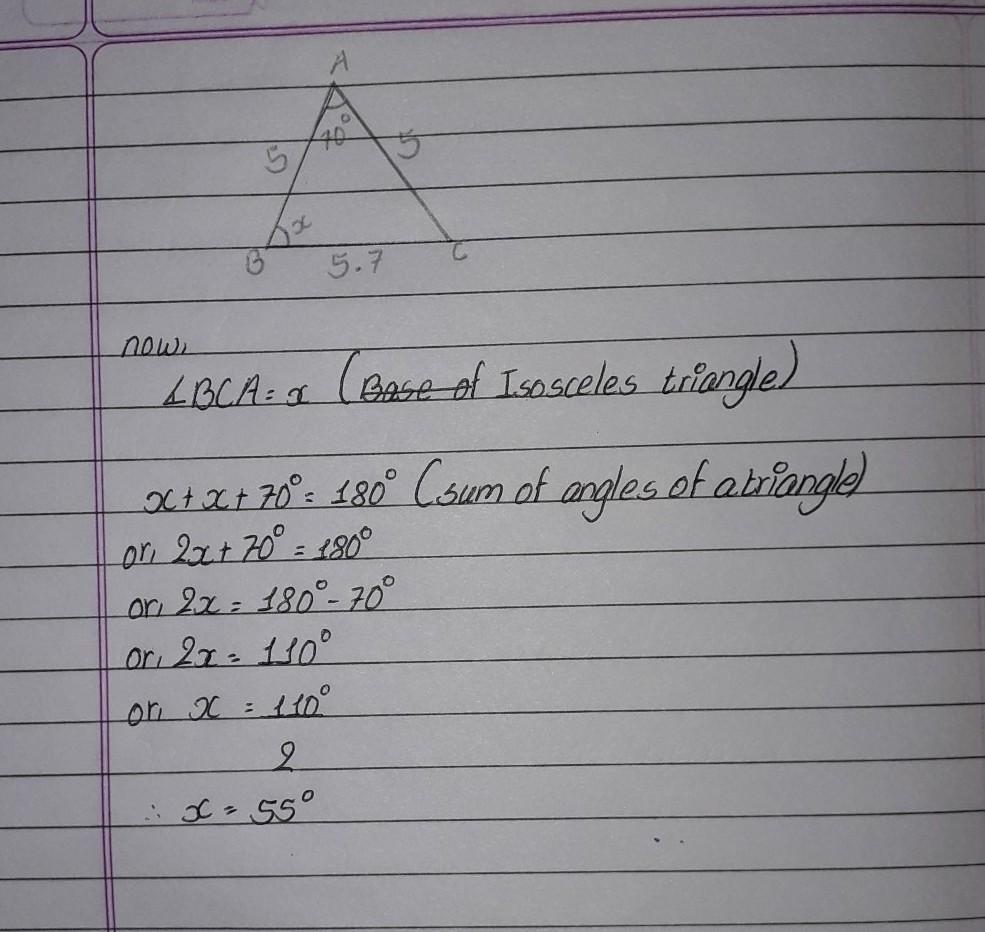 A
70°
5 5
x
B 5.7 C
now,
∠BCA = x (Base of Isosceles triangle)
x + x + 70° = 180° (sum of angles of a triangle)
or, 2x + 70° = 180°
or, 2x = 180° - 70°
or, 2x = 110°
or, x = 110°
2
∴ x = 55°